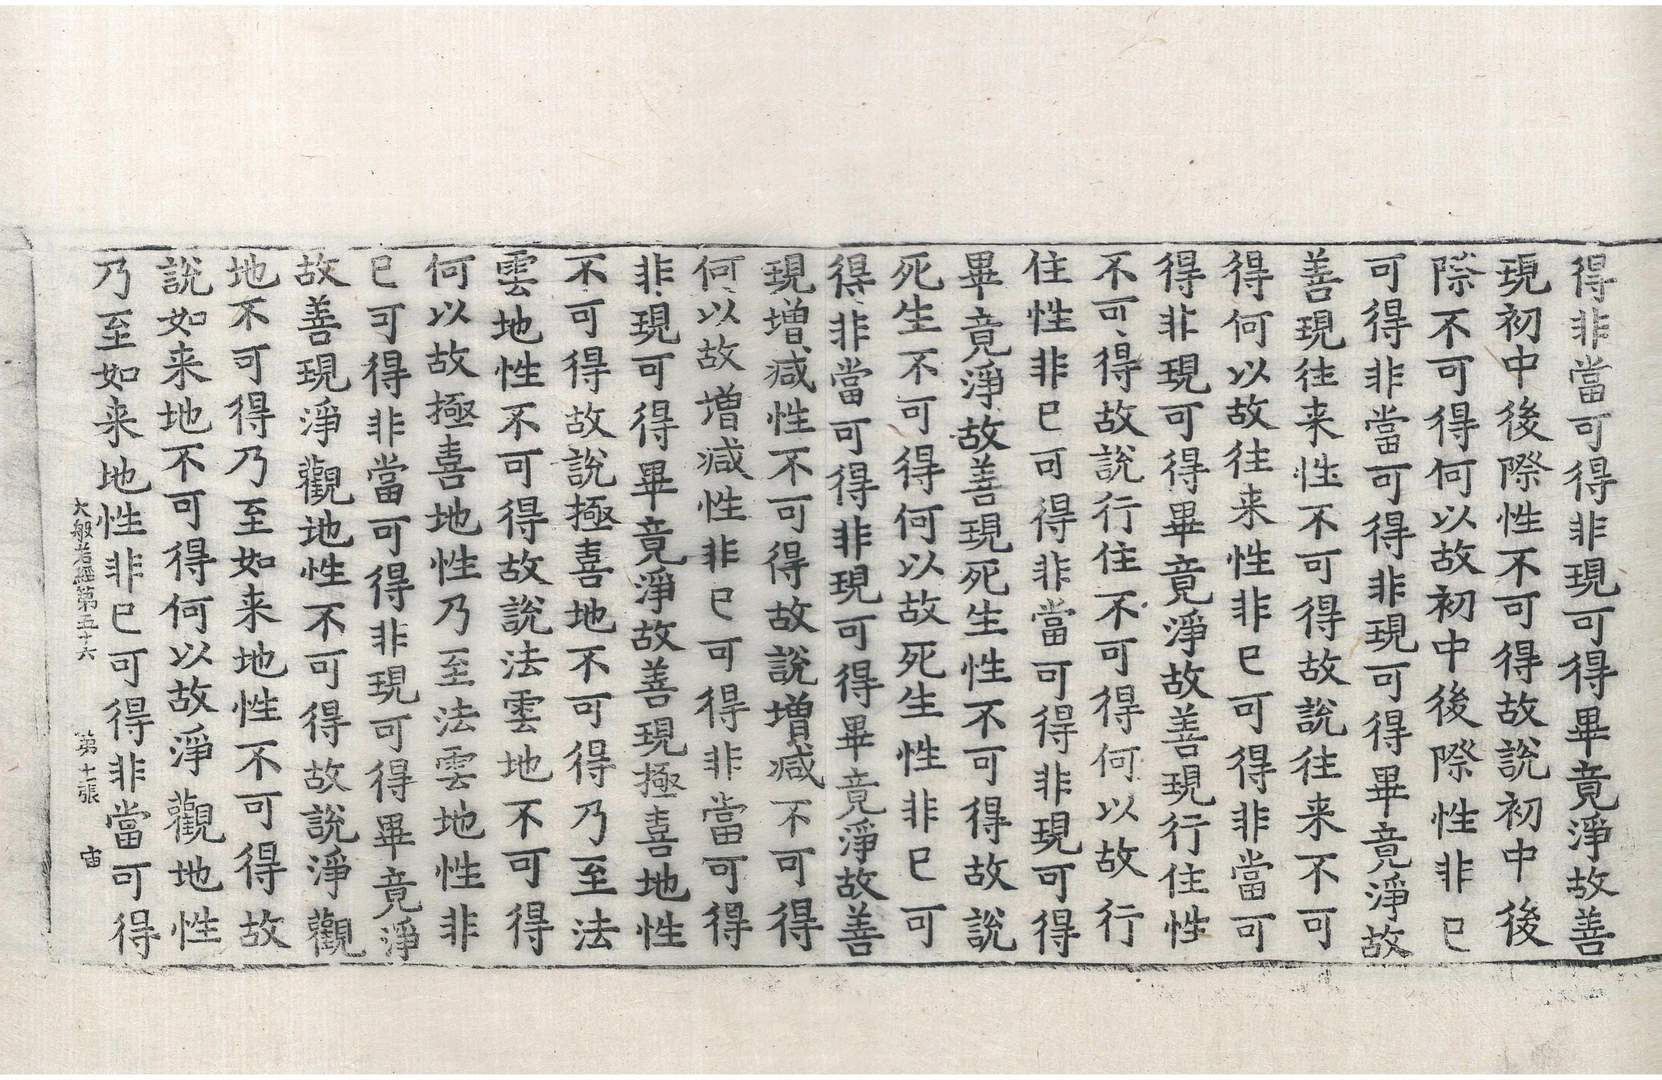 得非當可得非現可得畢竟淨故善
現初中後際性不可得故說初中後
際不可得何以故初中後際性非已
可得非當可得非現可得畢竟淨故
善現往来性不可得故說往来不可
得何以故往来性非已可得非當可
得非現可得畢竟淨故善現行住性
不可得故說行住不可得何以故行
住性非已可得非當可得非現可得
畢竟淨故善現死生性不可得故說
死生不可得何以故死生性非已可
得非當可得非現可得畢竟淨故善
現增减性不可得故說增减不可得
何以故增减性非已可得非當可得
非現可得畢竟淨故善現極喜地性
不可得故說極喜地不可得乃至法
雲地性不可得故說法雲地不可得
何以故極喜地性乃至法雲地性非
已可得非當可得非現可得畢竟淨
故善現淨觀地性不可得故說淨觀
地不可得乃至如来地性不可得故
說如来地不可得何以故淨觀地性
乃至如来地性非已可得非當可得
大般若經第五十六 第十張 宙